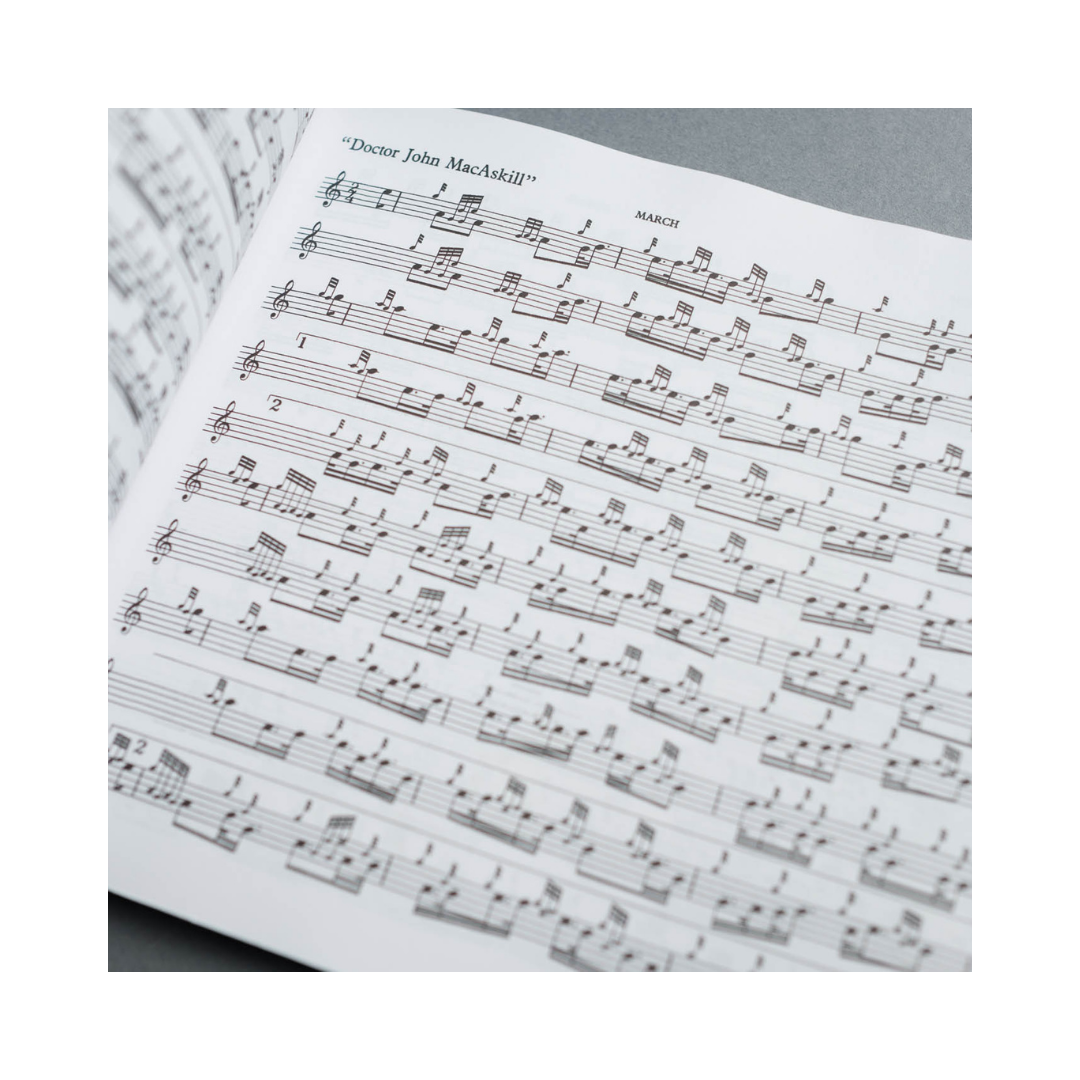 “Doctor John MacAskill”
MARCH
2
4
1
2
2